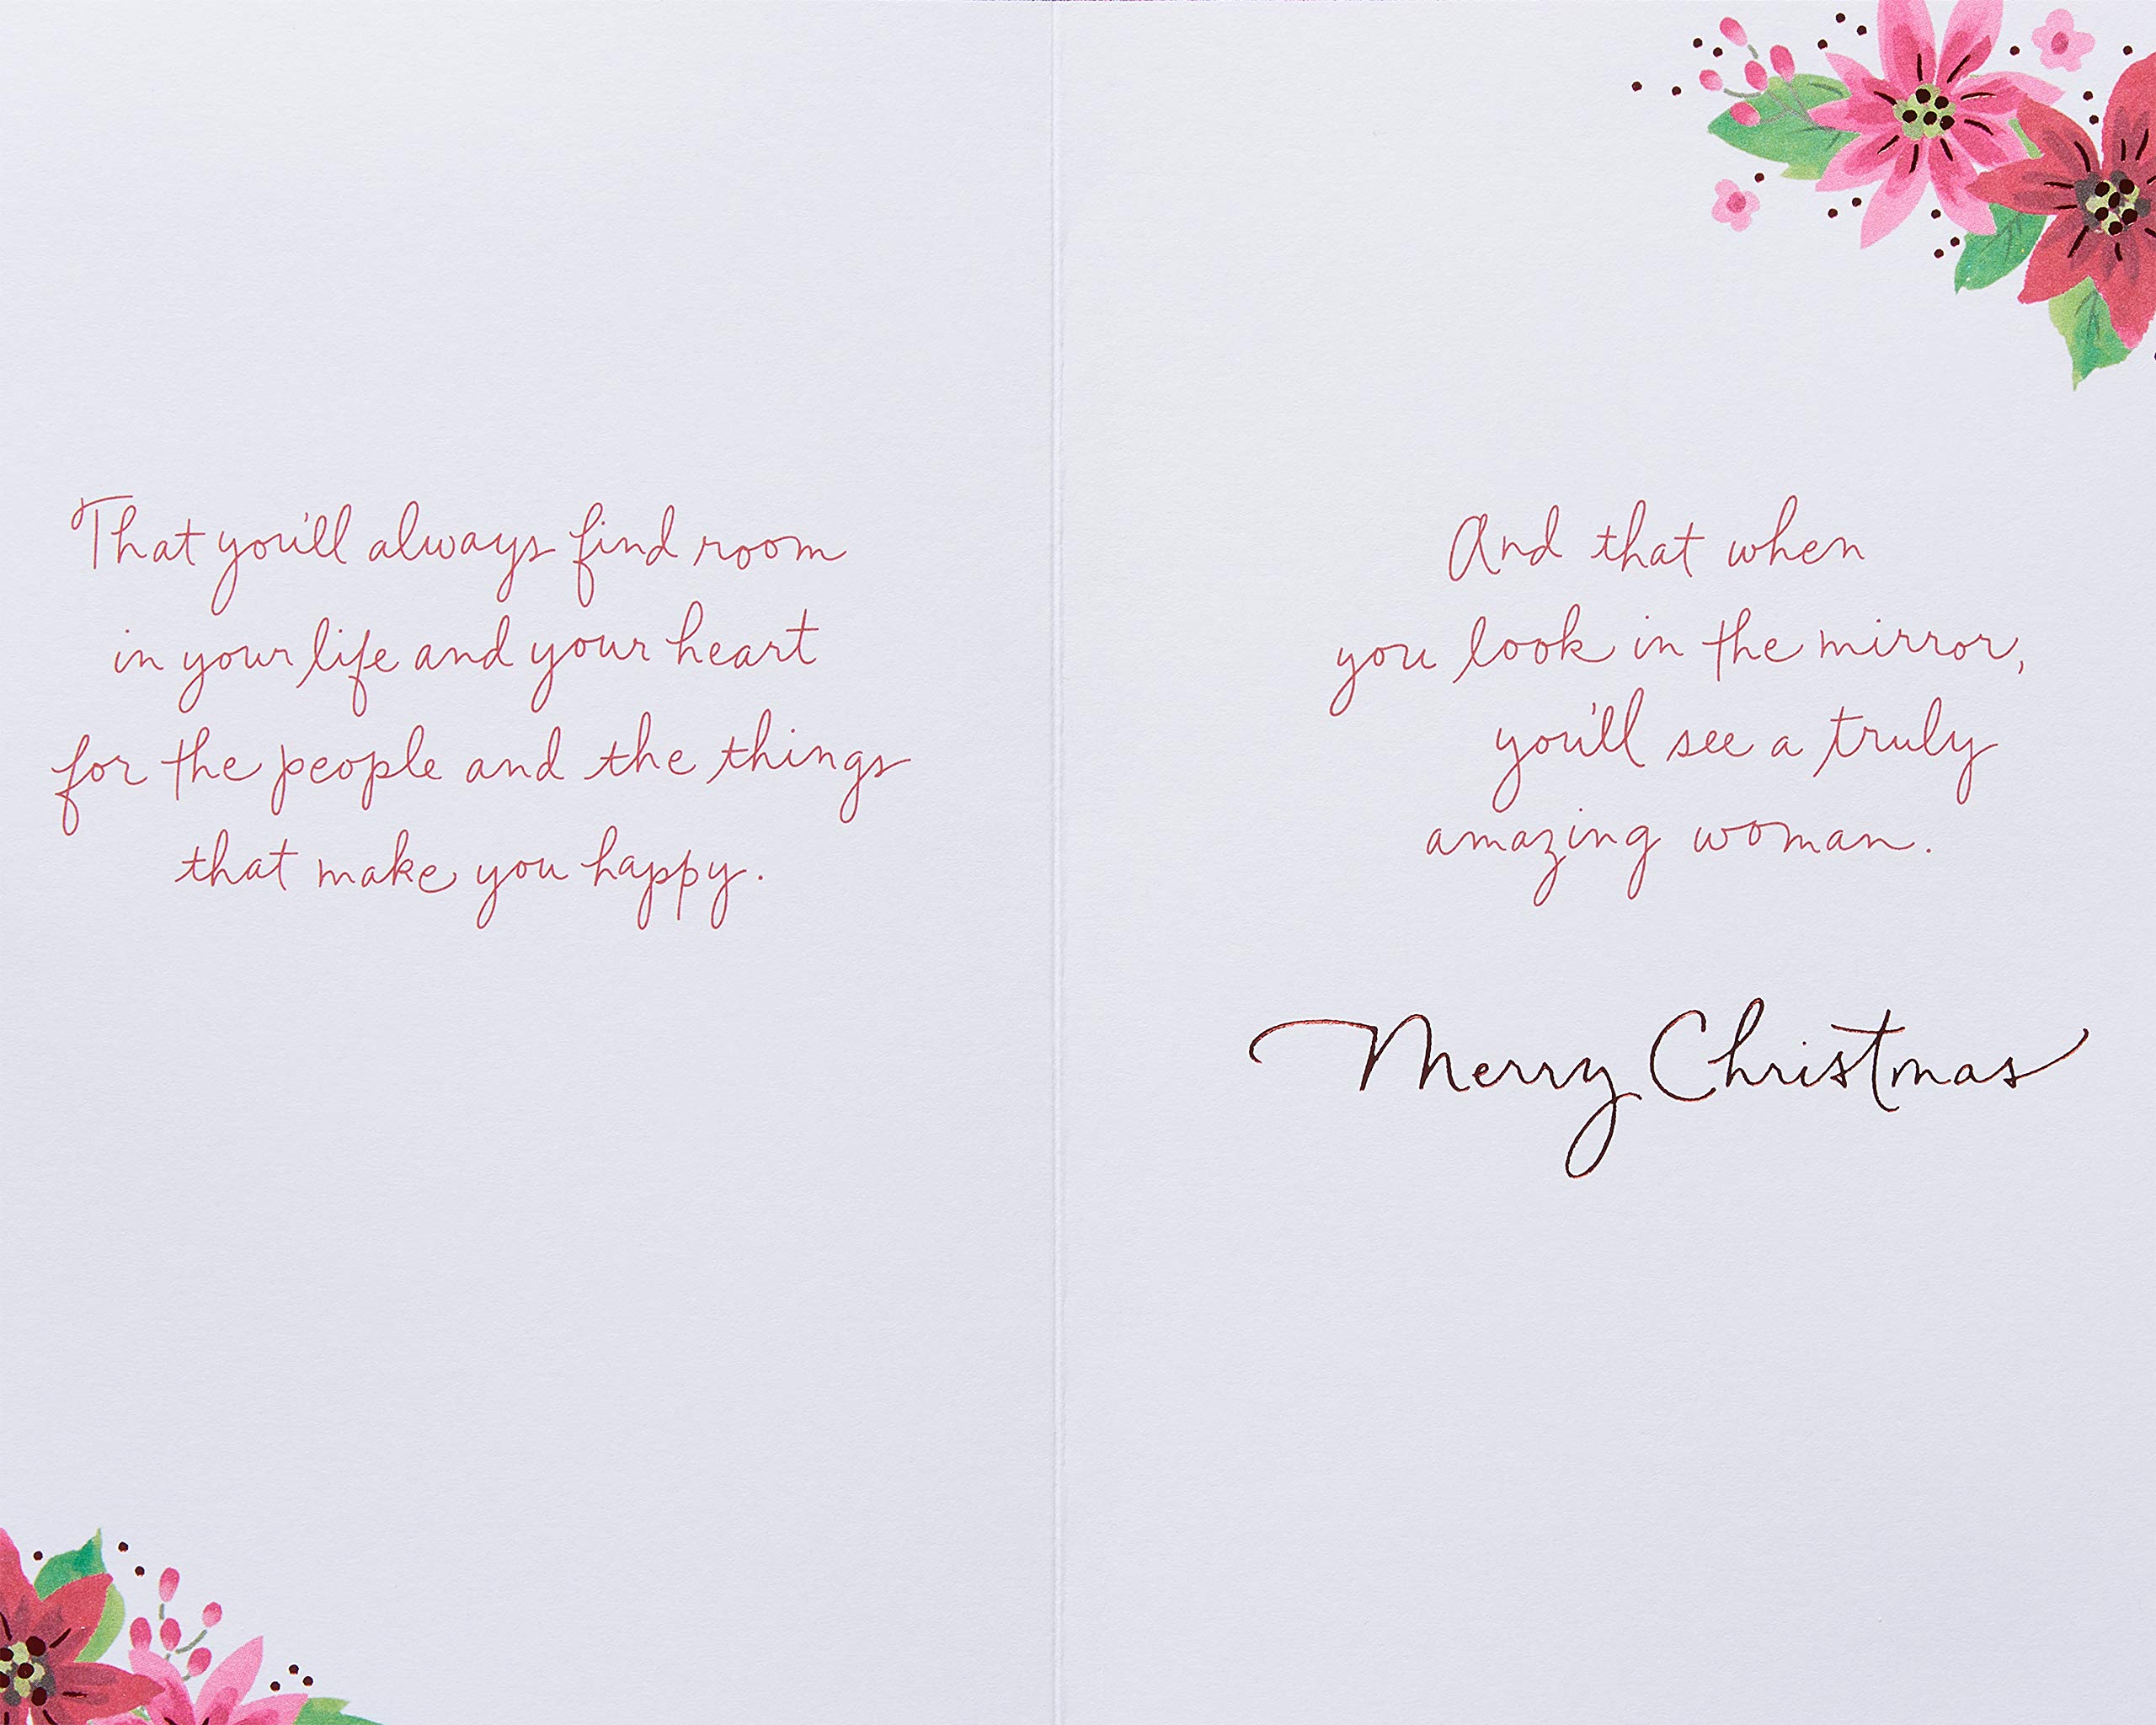 That you'll always find room
in your life and your heart
for the people and the things
that make you happy.
And that when
you look in the mirror,
you'll see a truly
amazing woman.
Merry Christmas